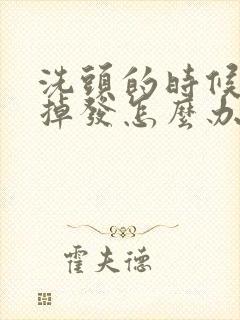 洗頭的時候
掉發怎麼办
霍夫德